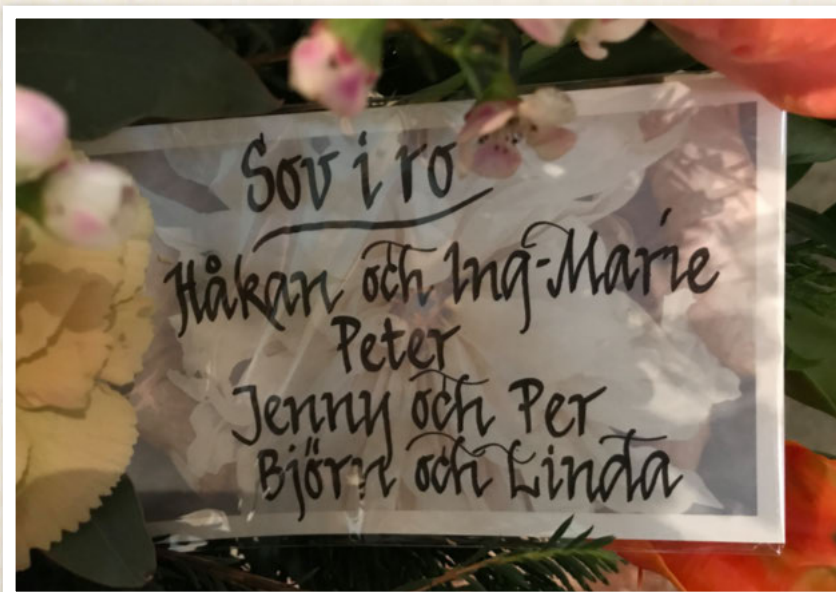 Sov i ro
Håkan och Ing-Marie
Peter
Jenny och Per
Björn och Linda